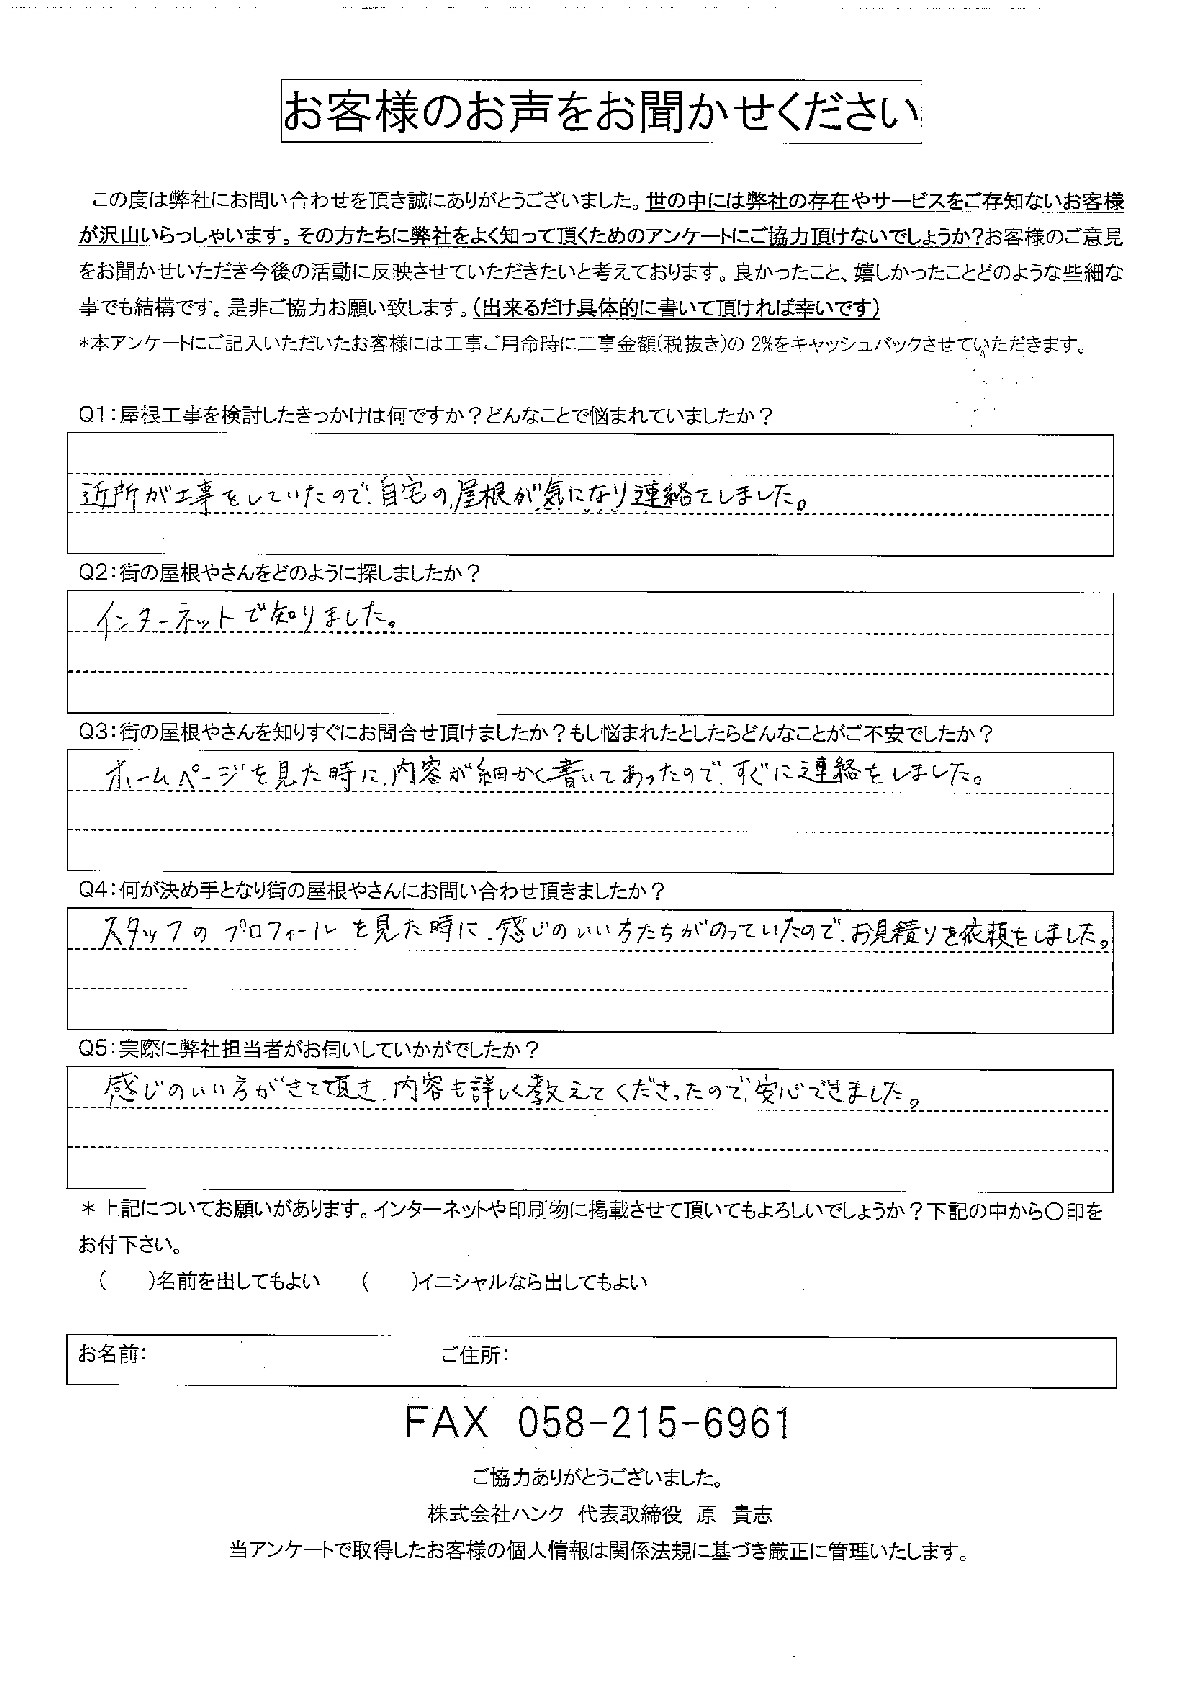 お客様のお声をお聞かせください
この度は弊社にお問い合わせを頂き誠にありがとうございました。世の中には弊社の存在やサービスをご存知ないお客様
が沢山いらっしゃいます。その方たちに弊社をよく知って頂くためのアンケートにご協力頂けないでしょうか?お客様のご意見
をお聞かせいただき今後の活動に反映させていただきたいと考えております。良かったこと、嬉しかったことどのような些細な
事でも結構です。是非ご協力お願い致します。(出来るだけ具体的に書いて頂ければ幸いです)
*本アンケートにご記入いただいたお客様には工事ご用命時に工事金額(税抜き)の 2%をキャッシュバックさせていただきます。
Q1:屋根工事を検討したきっかけは何ですか?どんなことで悩まれていましたか?
近所が工事をしていたので、自宅の屋根が気になり連絡をしました。
Q2:街の屋根やさんをどのように探しましたか?
インターネットで知りました。
Q3:街の屋根やさんを知りすぐにお問合せ頂けましたか?もし悩まれたとしたらどんなことがご不安でしたか?
ホームページを見た時に、内容が細かく書いてあったので、すぐに連絡をしました。
Q4:何が決め手となり街の屋根やさんにお問い合わせ頂きましたか?
スタッフの プロフィールを見た時に、感じのいい方たちがのっていたので、お見積りを依頼をしました。
Q5:実際に弊社担当者がお伺いしていかがでしたか?
感じのいい方がきて頂き、内容も詳しく教えてくださったので、安心できました。
* 上記についてお願いがあります。インターネットや印刷物に掲載させて頂いてもよろしいでしょうか?下記の中から〇印を
お付下さい。
( )名前を出してもよい ( )イニシャルなら出してもよい
お名前: ご住所:
FAX 058-215-6961
ご協力ありがとうございました。
株式会社ハンク 代表取締役 原 貴志
当アンケートで取得したお客様の個人情報は関係法規に基づき厳正に管理いたします。